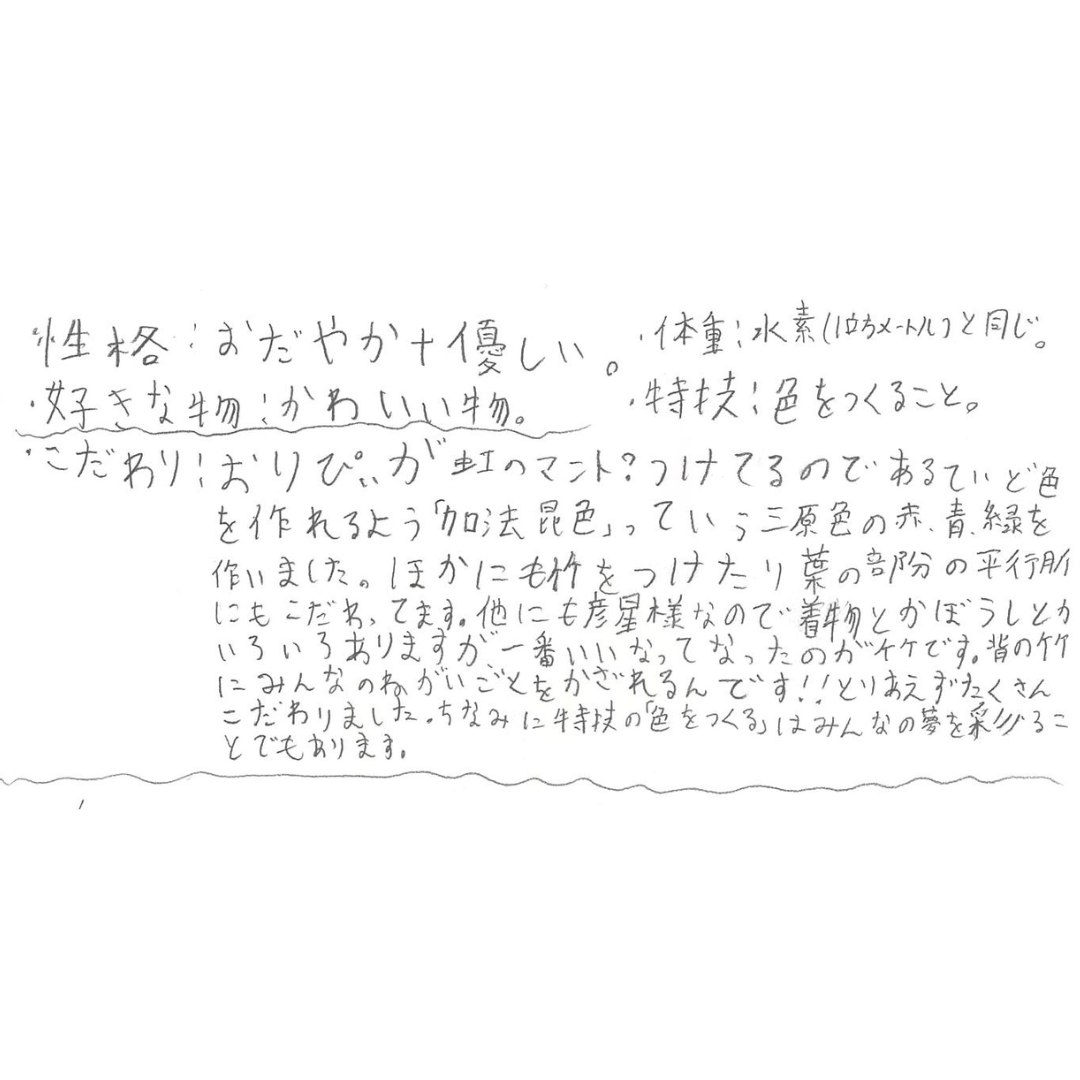 ・性格：おだやか+優しい。
・体重：水素(1立方メートル)と同じ。
・好きな物：かわいい物。
・特技：色をつくること。
・こだわり：おりぴぃが虹のマント?つけてるのであるていど色
を作れるよう「加法昆色」っていう三原色の赤、青、緑を
作いました。ほかにも竹をつけたり葉の部分の平行脈
にもこだわってます。他にも彦星様なので着物とかぼうしとか
いろいろありますが一番いいなってなったのが竹です。背の竹
にみんなのねがいごとをかざれるんです!!とりあえずたくさん
こだわりました。ちなみに特技の「色をつくる」はみんなの夢を彩るこ
とでもあります。